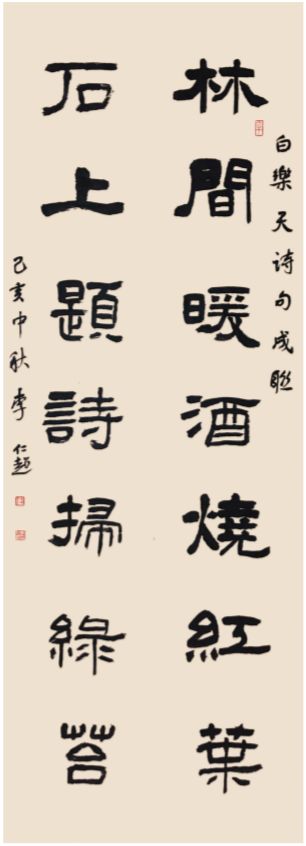 白樂天詩句成聯
林間暖酒燒紅葉
石上題詩掃綠苔
己亥中秋李仁趙